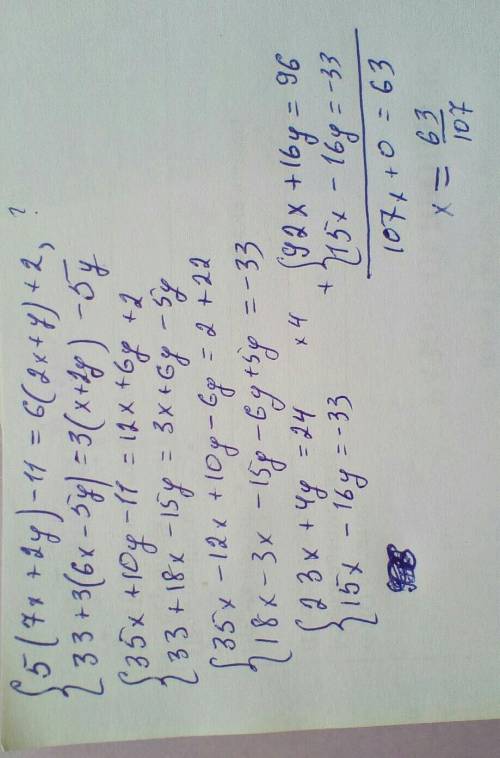 {5(7x+2y)-11=6(2x+y)+2, ?
{33+3(6x-5y)=3(x+2y)-5y
{35x+10y-11=12x+6y+2
{33+18x-15y=3x+6y-5y
{35x-12x+10y-6y=2+22
{18x-3x-15y-6y+5y=-33
{23x+4y=24 x4
{15x-16y=-33
+ {92x+16y=96
{15x-16y=-33
107x+0=63
x=63/107